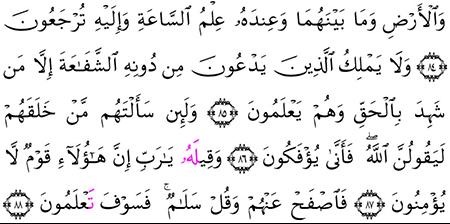 وَٱلْأَرْضِ وَمَا بَيْنَهُمَا وَعِندَهُۥ عِلْمُ ٱلسَّاعَةِ وَإِلَيْهِ تُرْجَعُونَ
﴿٨٤﴾ وَلَا يَمْلِكُ ٱلَّذِينَ يَدْعُونَ مِن دُونِهِ ٱلشَّفَٰعَةَ إِلَّا مَن
شَهِدَ بِٱلْحَقِّ وَهُمْ يَعْلَمُونَ ﴿٨٥﴾ وَلَئِن سَأَلْتَهُم مَّنْ خَلَقَهُمْ
لَيَقُولُنَّ ٱللَّهُ ۖ فَأَنَّىٰ يُؤْفَكُونَ ﴿٨٦﴾ وَقِيلَهُۥ يَٰرَبِّ إِنَّ هَٰٓؤُلَآءِ قَوْمٌ لَّا
يُؤْمِنُونَ ﴿٨٧﴾ فَٱصْفَحْ عَنْهُمْ وَقُلْ سَلَٰمٌ ۚ فَسَوْفَ تَعْلَمُونَ ﴿٨٨﴾